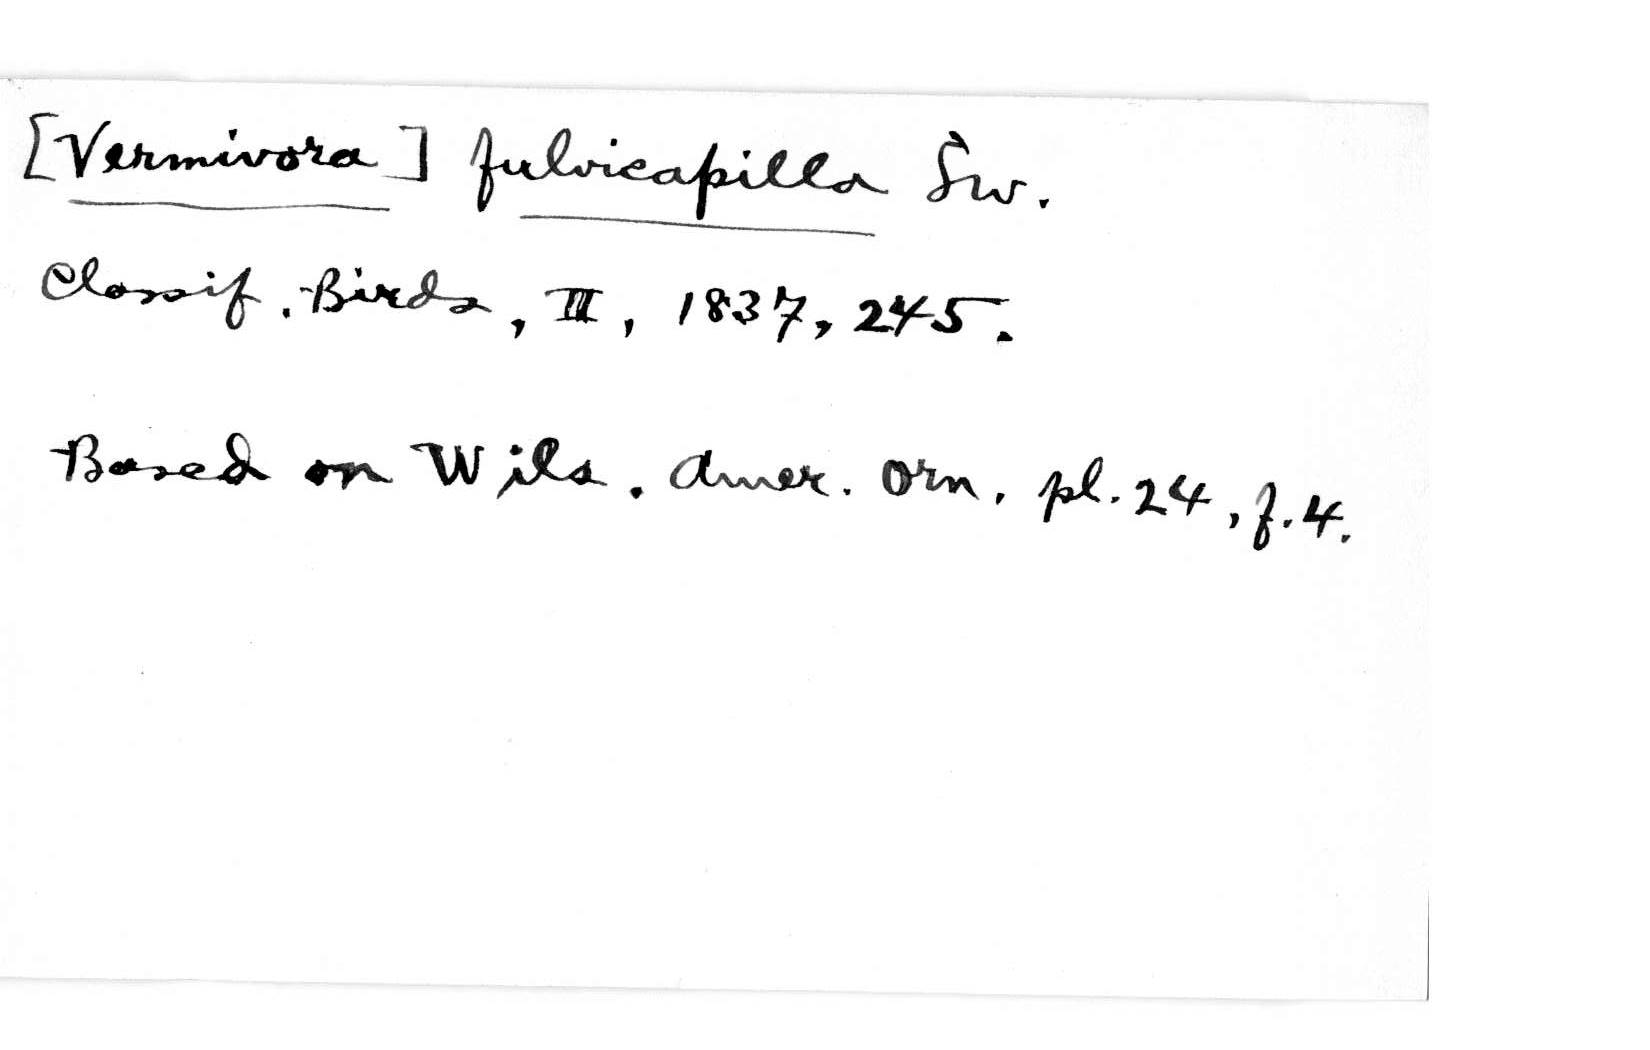 [Vermivora] fulvicapilla Sw.
Classif. Birds, II, 1837, 245.
Based on Wils. Amer. Orn. pl. 24, f. 4.